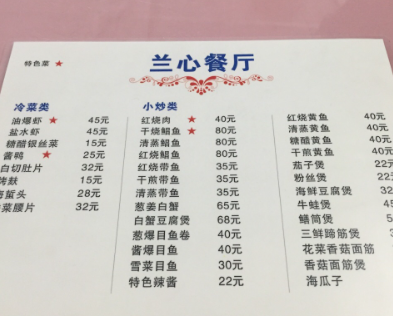 特色菜 ★
兰心餐厅
冷菜类
油爆虾 ★ 45元
盐水虾 45元
糖醋银丝菜 15元
酱鸭 ★ 25元
白切肚片 32元
烤麸 15元
蜇头 28元
菜腰片 32元
小炒类
红烧肉 ★ 40元
干烧鲳鱼 ★ 80元
清蒸鲳鱼 80元
红烧鲳鱼 80元
红烧带鱼 35元
干煎带鱼 35元
清蒸带鱼 35元
葱姜白蟹 65元
白蟹豆腐煲 68元
葱爆目鱼卷 40元
酱爆目鱼 40元
雪菜目鱼 30元
特色辣酱 22元
红烧黄鱼 40元
清蒸黄鱼 40元
糖醋黄鱼 40元
干煎黄鱼 40元
茄子煲 22元
粉丝煲 22
海鲜豆腐煲 32
牛蛙煲 4
鳝筒煲
三鲜蹄筋煲
花菜香菇面筋
香菇面筋煲
海瓜子